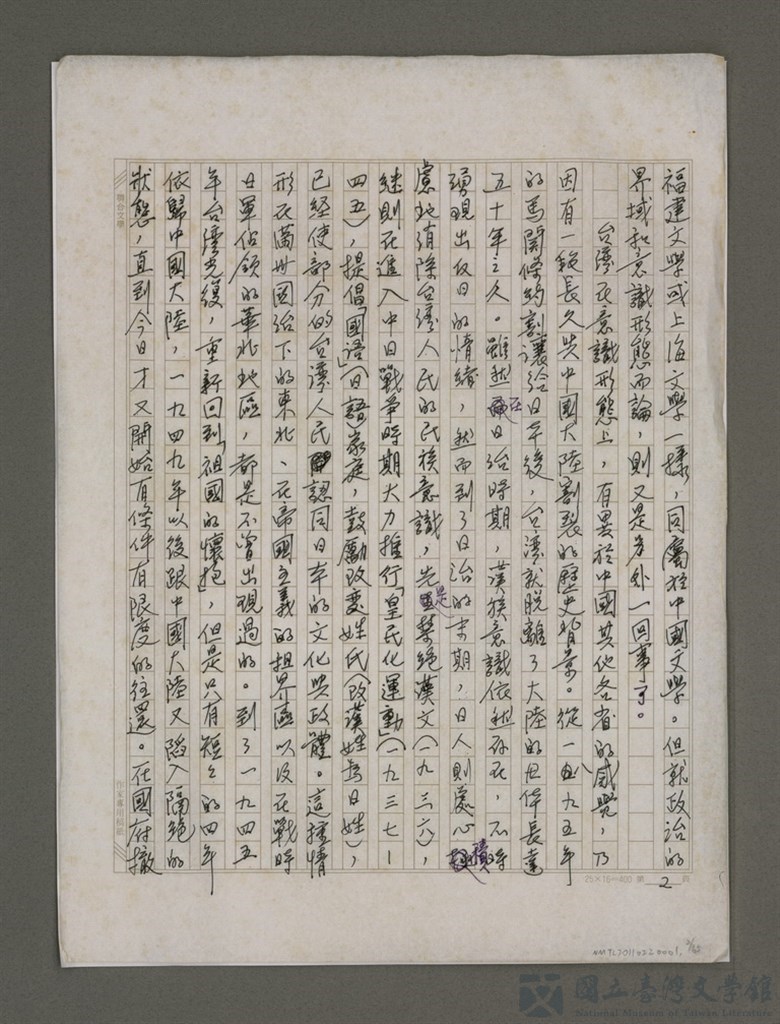 福建文學或上海文學一樣，同屬於中國文學。但就政治的
界域和意識形態而論，則又是另外一回事了。
台灣在意識形態上，有異於中國其他各省的感覺，乃
因有一段長久與中國大陸割裂的歷史背景。從一八九五年
的馬關條約割讓給日本後，台灣就脫離了大陸的母体長達
五十年之久。雖然在日治時期，漢族意識依然存在，不時
湧現出反日的情緒，然而到了日治的末期，日人則處心積
慮地消除台灣人民的民族意識，先是禁絕漢文（一九三六），
繼則在進入中日戰爭時期大力推行「皇民化運動」（一九三七—
四五），提倡「國語」（日語）家庭，鼓勵改變姓氏（改漢姓為日姓），
已經使部分的台灣人民認同日本的文化與政體。這種情
形在滿州國治下的東北、在帝國主義的租界區以及在戰時
日軍佔領的華北地區，都是不曾出現過的。到了一九四五
年台灣光復，重新回到「祖國的懷抱」，但是只有短短的四年
依歸中國大陸，一九四九年以後跟中國大陸又陷入隔絕的
狀態，直到今日才又開始有條件有限度的往還。在國府撤
聯合文學
作家專用稿紙
25×16=400 第 2 頁
NMTL20110520001, 2/25
國立臺灣文學館
National Museum of Taiwan Literature